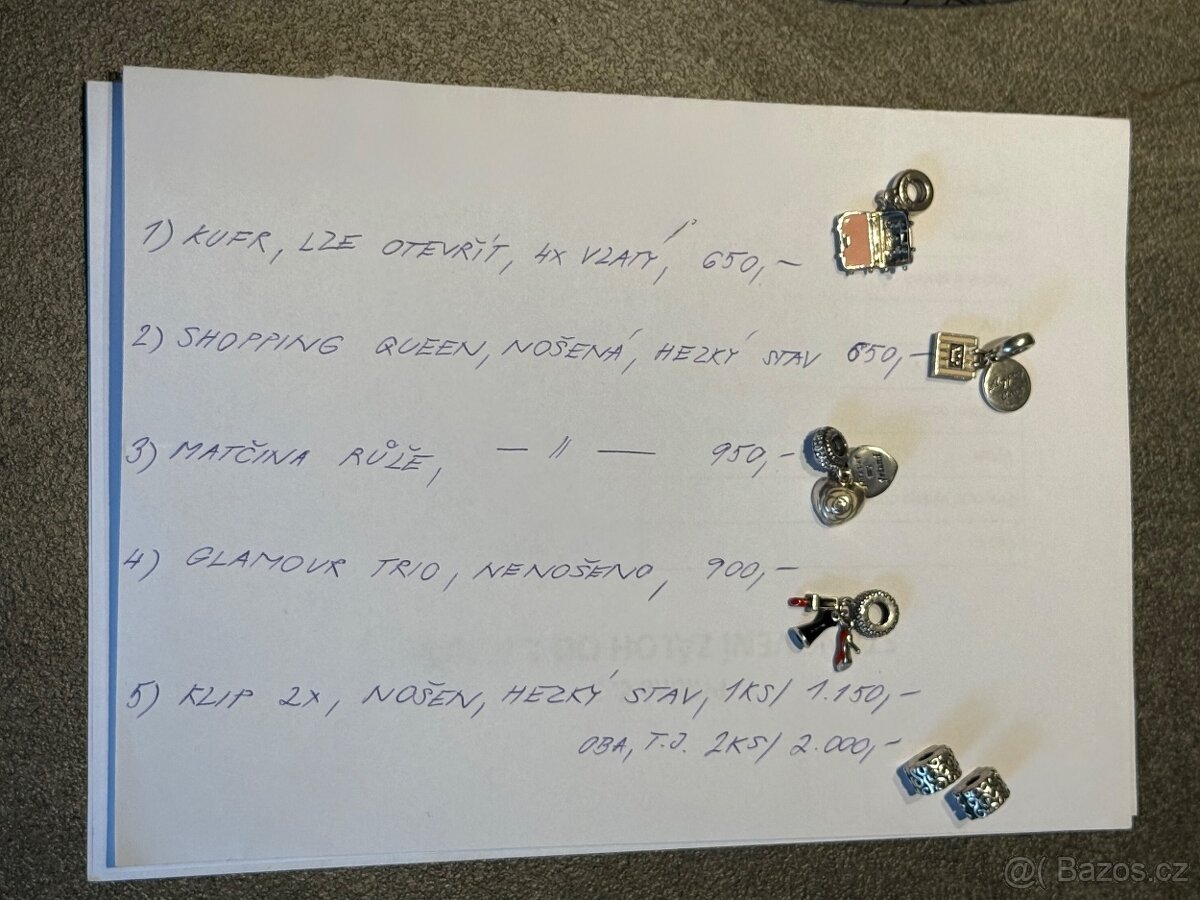 1) KUFR, LZE OTEVŘÍT, 4X VZATÝ, 650,-
2) SHOPPING QUEEN, NOŠENÁ, HEZKÝ STAV 650,-
3) MATČINA RŮŽE, — II — 950,-
4) GLAMOUR TRIO, NENOŠENO, 900,-
5) KLIP 2X, NOŠEN, HEZKÝ STAV, 1KS/ 1.150,-
OBA, T.J. 2KS/ 2.000,-
@( Bazos.cz